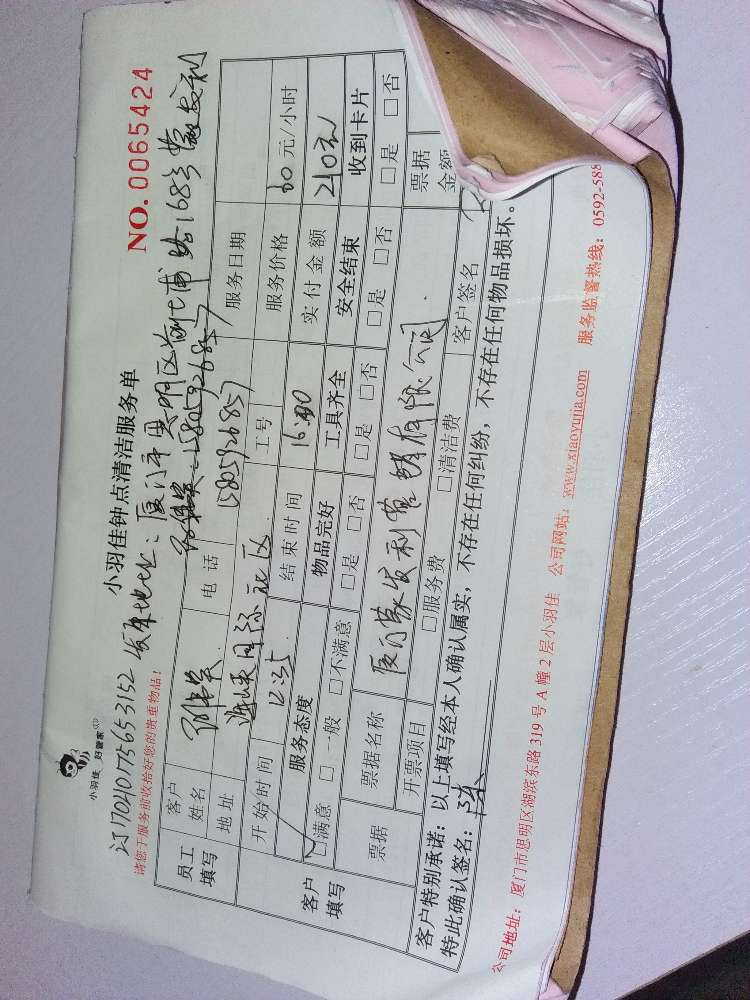 小羽佳 好管家
小羽佳钟点清洁服务单
NO. 0065424
订170210175653152 发票地址：厦门市思明区前埔 168号
请您于服务前收拾好您的贵重物品！
15805926857
员工填写 客户姓名 电话 15805926857 服务日期
地址 海峡国际社区 工号 服务价格 60元/小时
开始时间 结束时间 16:00 实付金额 210元
客户填写 服务态度 物品完好 工具齐全 安全结束 收到卡片
□满意 □一般 □不满意 □是 □否 □是 □否 □是 □否 □是 □否
票据 票据名称 厦门蒙发利营销有限公司 票据金额
开票项目 □服务费 □清洁费 客户签名
客户特别承诺：以上填写经本人确认属实，不存在任何纠纷，不存在任何物品损坏。
特此确认签名：陈
公司地址：厦门市思明区湖滨东路 319 号 A 幢 2 层小羽佳 公司网站：www.xiaoyujia.com 服务监督热线：0592-588